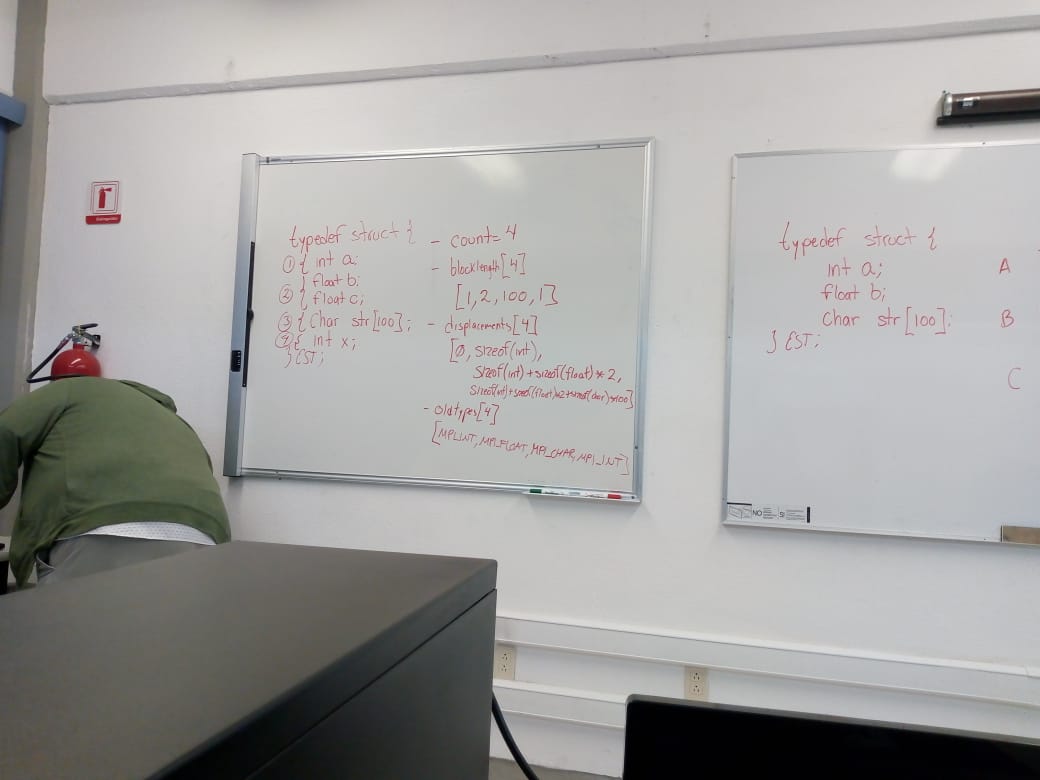 typedef struct {
① { int a;
} float b;
② { float c;
③ { Char str[100];
④ { int x;
} EST;
- count= 4
- blocklength[4]
[1, 2, 100, 1]
- displacements[4]
[Ø, sizeof(int),
sizeof(int)+sizeof(float)*2,
sizeof(int)+sizeof(float)*2+sizeof(char)*100]
- oldtypes[4]
[MPI_INT, MPI_FLOAT, MPI_CHAR, MPI_INT]
typedef struct {
int a;
float b;
Char str[100];
} EST;
A
B
C
NO
SI